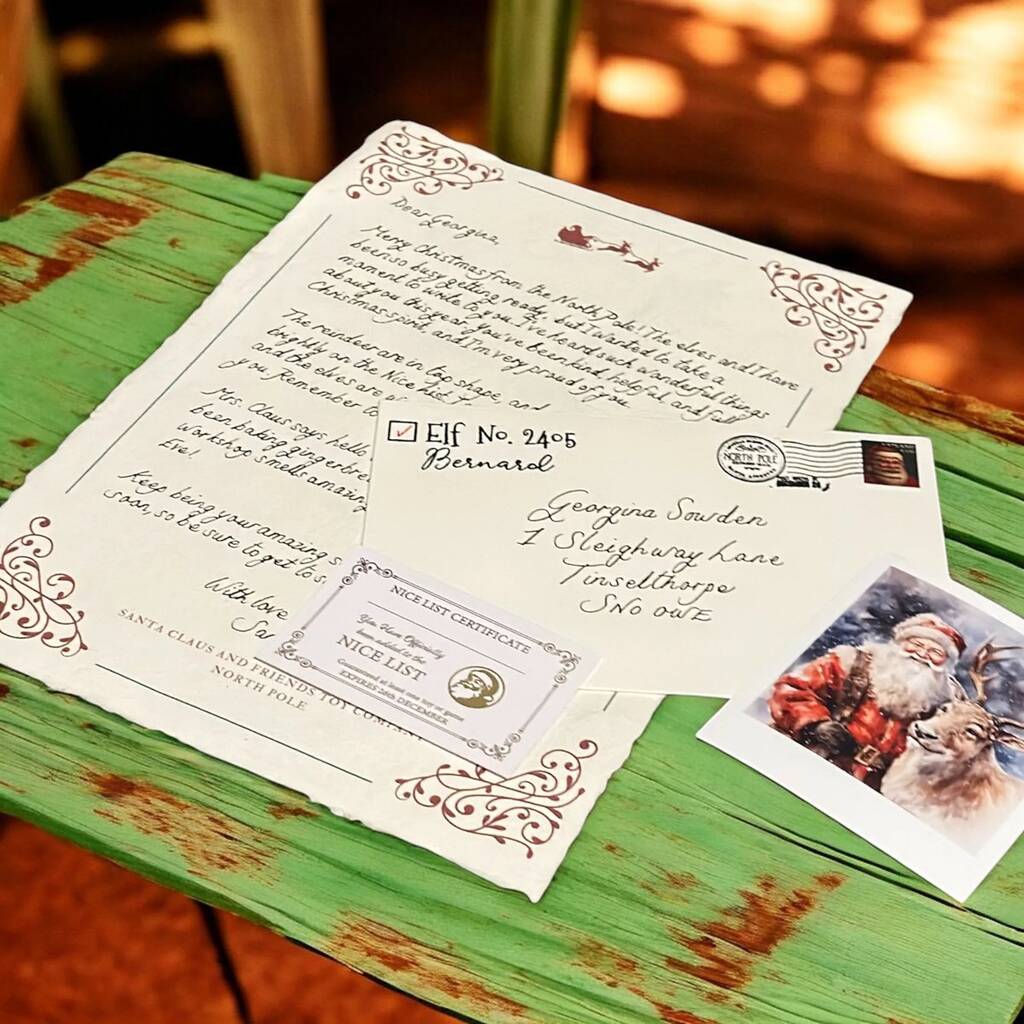 Dear Georgina,
Merry Christmas from the North Pole! The elves and I have
been so busy getting ready, but I wanted to take a
moment to write to you. I've heard such wonderful things
about you this year. You've been kind, helpful, and full
Christmas spirit, and I'm very proud of you
The reindeer are in top shape, and
brightly on the Nice List
and the elves are
you. Remember to
Mrs. Claus says hello
been baking gingerbre
Workshop smells amazing
Eve!
Keep being your amazing s
soon, so be sure to get to s
With love
Sa
SANTA CLAUS AND FRIENDS TOY COMPAN
NORTH POLE
Elf No. 2405
Bernard
NORTH POLE
Georgina Sowden
1 Sleighway Lane
Tinselthorpe
SN0 0WE
NICE LIST CERTIFICATE
You Have Officially
been added to the
NICE LIST
Guaranteed at least one toy or game
EXPIRES 26th DECEMBER